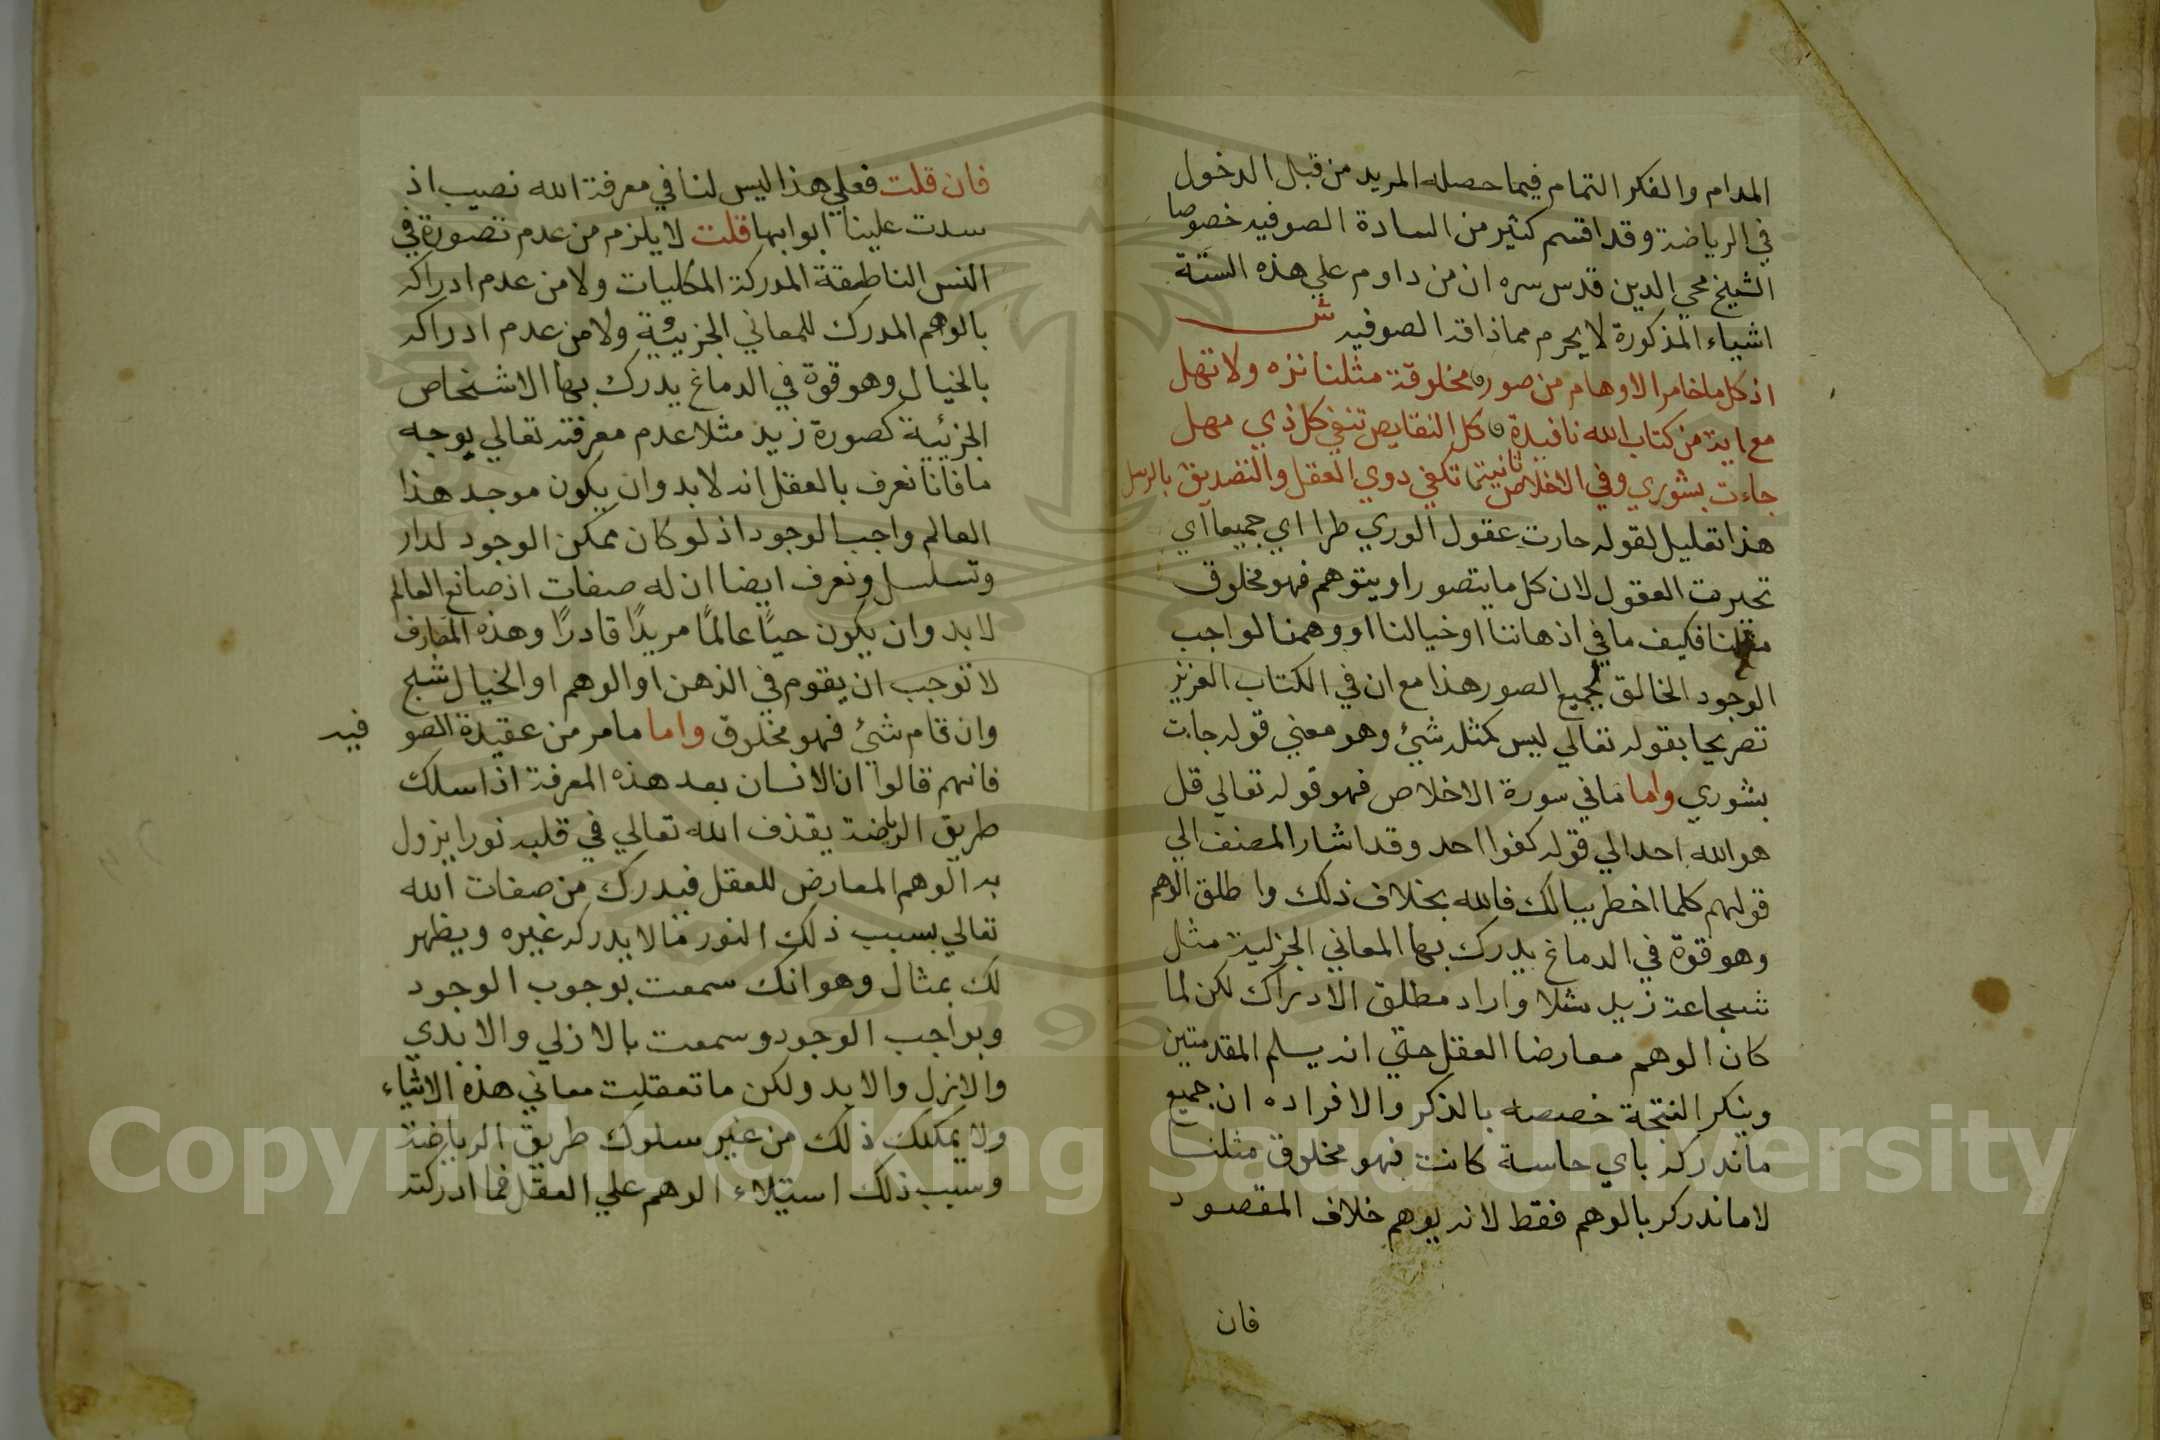 المدام والفكر التمام فيما حصله المريد من قبل الدخول
في الرياضة وقد اقسم كثير من السادة الصوفيه خصوصا
الشيخ محي الدين قدس سره ان من داوم علي هذه الستة
اشياء المذكورة لا يحرم مماذاقه الصوفيه ش
اذ كل ما خامر الاوهام من صور مخلوقة مثلنا نزه ولا تهل
مع اية من كتاب الله نافية كل النقايص تنفي كل ذي مهل
جاءت بشوري وفي الاخلاص ثانية تكفي ذوي العقل والتصديق بالرسل
هذا تعليل لقوله حارت عقول الوري طرا اي جميعا اي
تحيرت العقول لان كل ما يتصور او يتوهم فهو مخلوق
مثلنا فكيف ما في اذهاننا او خيالنا او وهمنا لواجب
الوجود الخالق لجميع الصور هذا مع ان في الكتاب العزيز
تصريحا بقوله تعالي ليس كمثله شئ وهو معني قوله جات
بشوري واما ما في سورة الاخلاص فهو قوله تعالي قل
هو الله احد الي قوله كفوا احد وقد اشار المصنف الي
قولهم كلما اخطر ببالك فالله بخلاف ذلك واطلق الوهم
وهو قوة في الدماغ يدرك بها المعاني الجزئية مثل
شجاعة زيد مثلا واراد مطلق الادراك لكن لما
كان الوهم معارضا العقل حتي انه يسلم المقدمتين
وينكر النتيجة خصصه بالذكر والا فراده ان جميع
ما ندركه باي حاسة كانت فهو مخلوق مثلنا
لا ما ندركه بالوهم فقط لانه يوهم خلاف المقصود
فان
فان قلت فعلي هذا ليس لنا في معرفة الله نصيب اذ
سدت علينا ابوابها قلت لا يلزم من عدم تصوره في
النفس الناطقة المدركة الكليات ولا من عدم ادراكه
بالوهم المدرك للمعاني الجزيية ولا من عدم ادراكه
بالخيال وهو قوة في الدماغ يدرك بها الاشخاص
الجزئية كصورة زيد مثلا عدم معرفته تعالي بوجه
ما فاننا نعرف بالعقل انه لا بد وان يكون موجد هذا
العالم واجب الوجود اذ لو كان ممكن الوجود لدار
وتسلسل ونعرف ايضا ان له صفات اذ صانع العالم
لا بد وان يكون حيًا عالمًا مريدًا قادرًا وهذه المعارف
لا توجب ان يقوم في الذهن او الوهم او الخيال شبح
وان قام شئ فهو مخلوق واما ما مر من عقيدة الصوفيه
فانهم قالوا ان الانسان بعد هذه المعرفة اذا سلك
طريق الرياضة يقذف الله تعالي في قلبه نورا يزول
به الوهم المعارض للعقل فيدرك من صفات الله
تعالي بسبب ذلك النور ما لا يدركه غيره ويظهر
لك بمثال وهو انك سمعت بوجوب الوجود
وبواجب الوجود وسمعت بالازلي والابدي
والازل والابد ولكن ما تعقلت معاني هذه الاشياء
ولا يمكنك ذلك من غير سلوك طريق الرياضة
وسبب ذلك استيلاء الوهم علي العقل فما ادركته
Copyright © King Saud University
1957